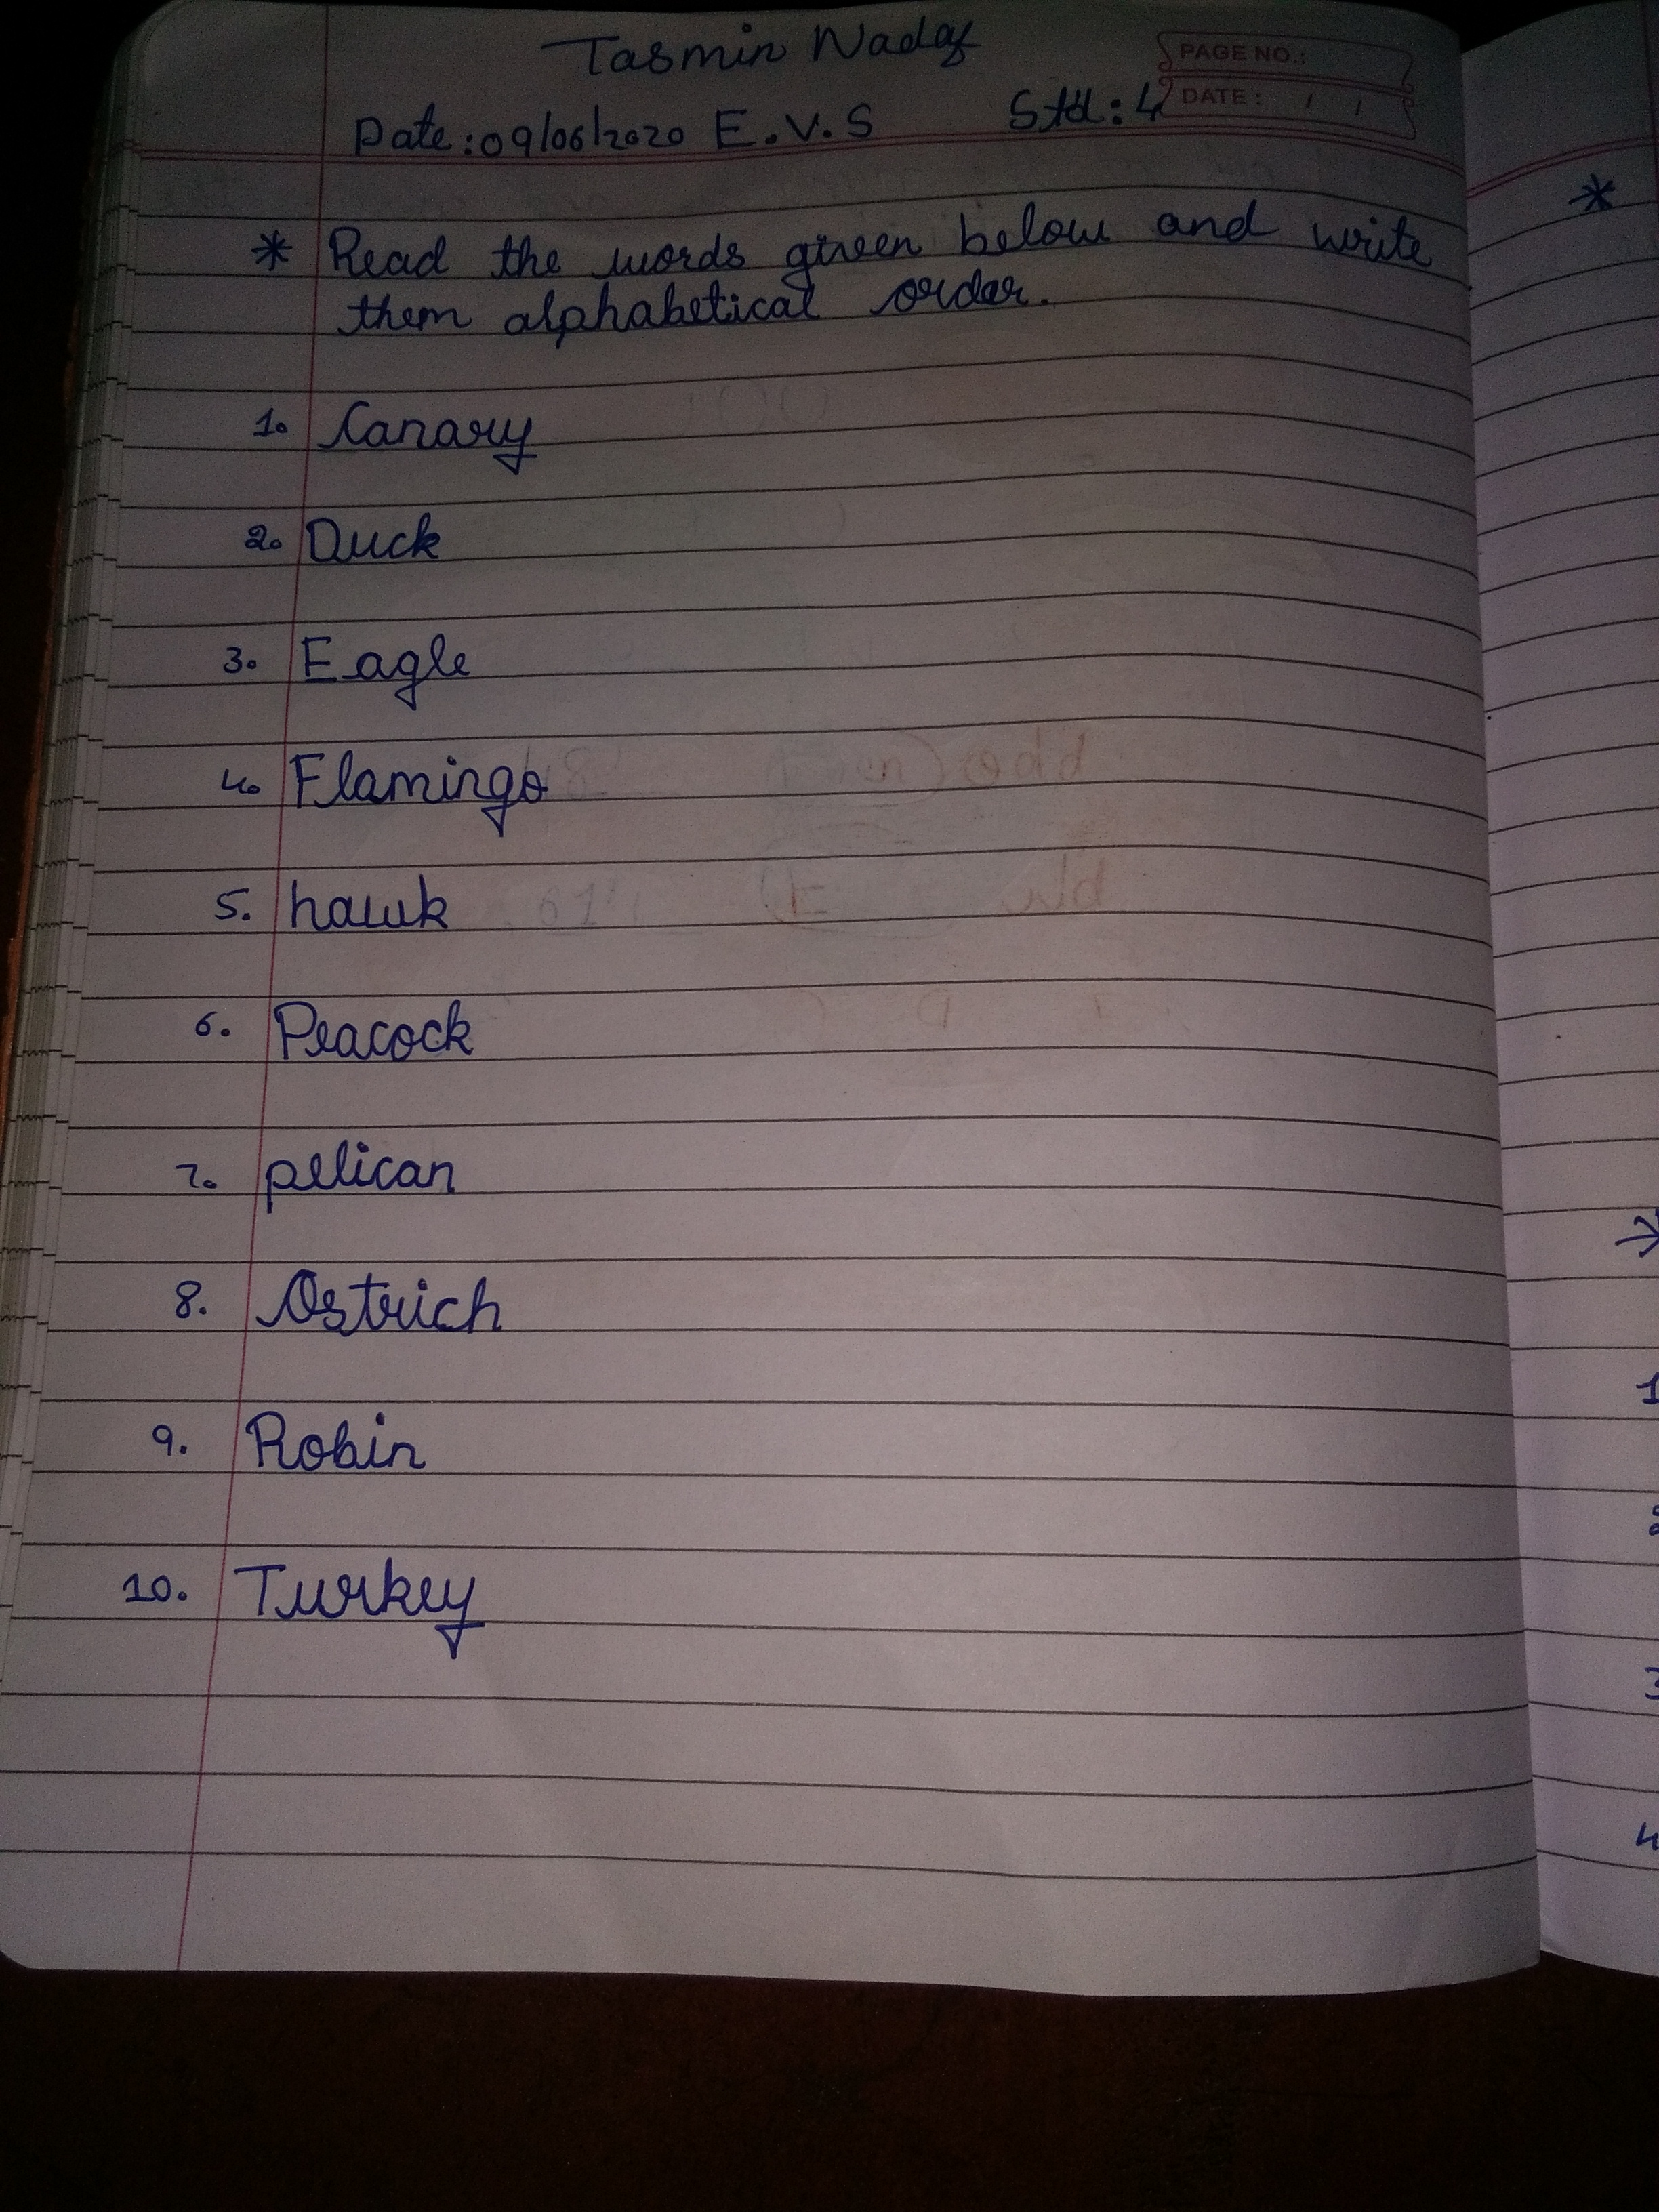 Tasmin Nadaf
PAGE NO.:
DATE: / /
Date:09/06/2020 E.V.S Std:4
* Read the words given below and write
them alphabetical order.
1. Canary
2. Duck
3. Eagle
4. Flamingo
5. hawk
6. Peacock
7. pelican
8. Ostrich
9. Robin
10. Turkey
*
→
1
2
3
4